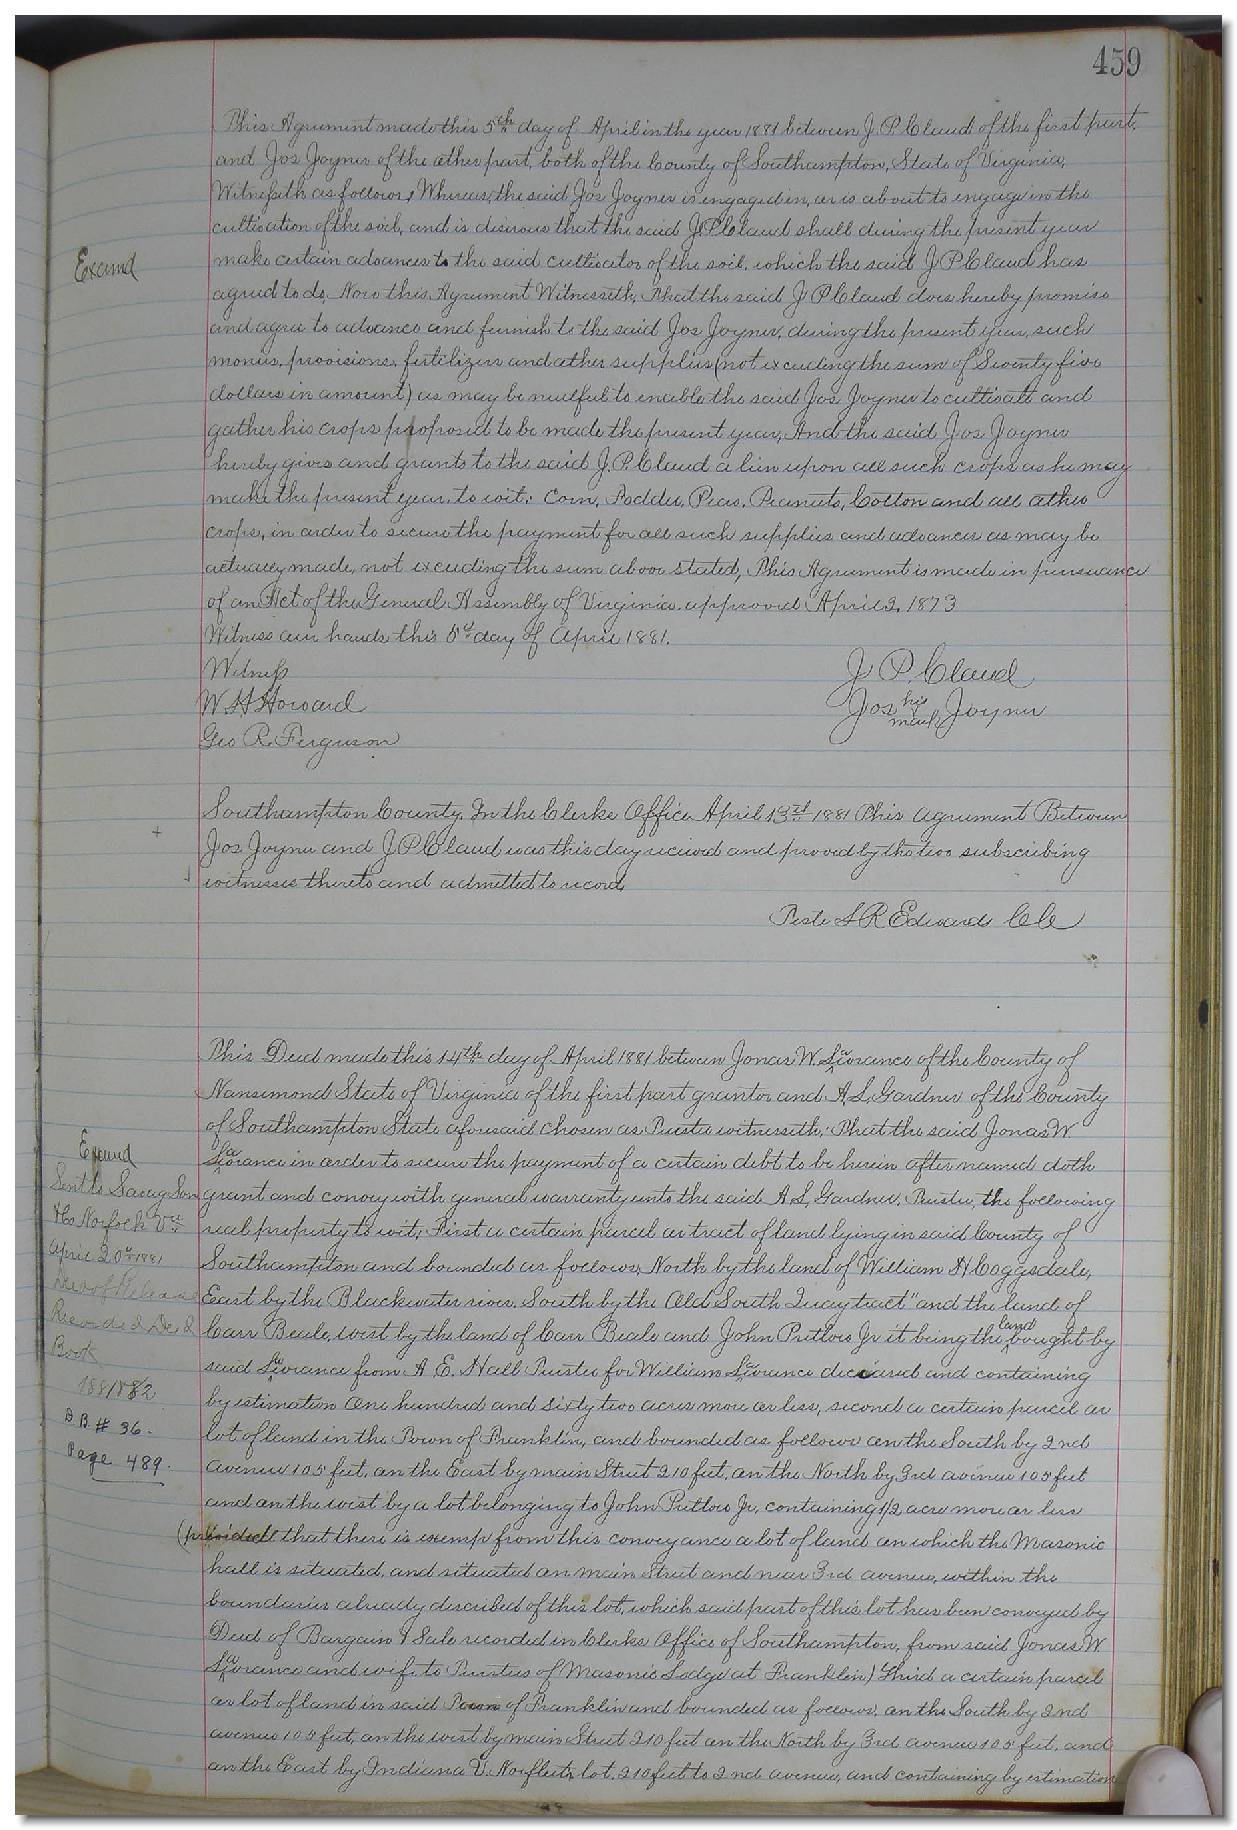 459
This Agreement made this 5th day of April in the year 1881 between J. P. Claud of the first part,
and Jos Joyner of the other part, both of the County of Southampton, State of Virginia,
Witnesseth as follows, Whereas, the said Jos Joyner is engaged in, or is about to engage in the
cultivation of the soil, and is desirous that the said J. P. Claud shall during the present year
make certain advances to the said cultivator of the soil, which the said J P Claud has
Examd
agreed to do, Now this Agreement Witnesseth, That the said J P Claud does hereby promise
and agree to advance and furnish to the said Jos Joyner, during the present year, such
monies, provisions, fertilizers and other supplies (not exceeding the sum of Seventy five
dollars in amount) as may be needful to enable the said Jos Joyner to cultivate and
gather his crops proposed to be made the present year, And the said Jos Joyner
hereby gives and grants to the said J. P. Claud a lien upon all such crops as he may
make the present year, to wit: Corn, Fodder, Peas, Peanuts, Cotton and all other
crops, in order to secure the payment for all such supplies and advances as may be
actually made, not exceeding the sum above stated, This Agreement is made in pursuance
of an Act of the General Assembly of Virginia approved April 2, 1873
Witness our hands this 5th day of April 1881.
Witness
J P. Claud
W. H Howard
Jos his mark Joyner
Geo R. Ferguson
Southampton County, In the Clerks Office April 13th 1881 This agreement Between
Jos Joyner and J P Claud was this day received and proved by the two subscribing
witnesses thereto and admitted to record
Teste L R Edwards CC
This Deed made this 14th day of April 1881 between Jonas W. Lawrance of the County of
Nansemond State of Virginia of the first part grantor and A. S. Gardner of the County
of Southampton State aforesaid chosen as Trustee witnesseth, That the said Jonas W
Examd
Lawrance in order to secure the payment of a certain debt to be herein after named doth
Sent to Savage Son
grant and convey with general warranty unto the said A. S. Gardner, Trustee, the following
& Co Norfolk Va
real property to wit; First a certain parcel or tract of land lying in said County of
April 20th 1881
Southampton and bounded as follows, North by the land of William H Coggsdale,
Deed of Release
East by the Blackwater river, South by the Old South Quay tract" and the land of
Recorded Deed
Carr Beale, west by the land of Carr Beale and John Pretlow Jr it being the land bought by
Book
said Lawrance from A E. Hall Trustee for William Lawrance deceased and containing
1881 1882
by estimation one hundred and sixty two acres more or less, second a certain parcel or
D B # 36.
lot of land in the Town of Franklin, and bounded as follows on the South by 2nd
Page 489.
avenue 105 feet, on the East by main Street 210 feet, on the North by 3rd avenue 105 feet
and on the west by a lot belonging to John Pretlow Jr, containing 1/2 acre more or less
(provided that there is exemp from this conveyance a lot of land on which the Masonic
hall is situated, and situated on main Street and near 3rd avenue, within the
boundaries already described of this lot, which said part of this lot has been conveyed by
Deed of Bargain & Sale recorded in Clerks Office of Southampton, from said Jonas W
Lawrance and wife to Trustees of Masonic Lodge at Franklin) Third a certain parcel
or lot of land in said Town of Franklin and bounded as follows, on the South by 2nd
avenue 105 feet, on the west by main Street 210 feet on the North by 3rd avenue 105 feet, and
on the East by Indiana V. Norfleets lot, 210 feet to 2nd avenue, and containing by estimation